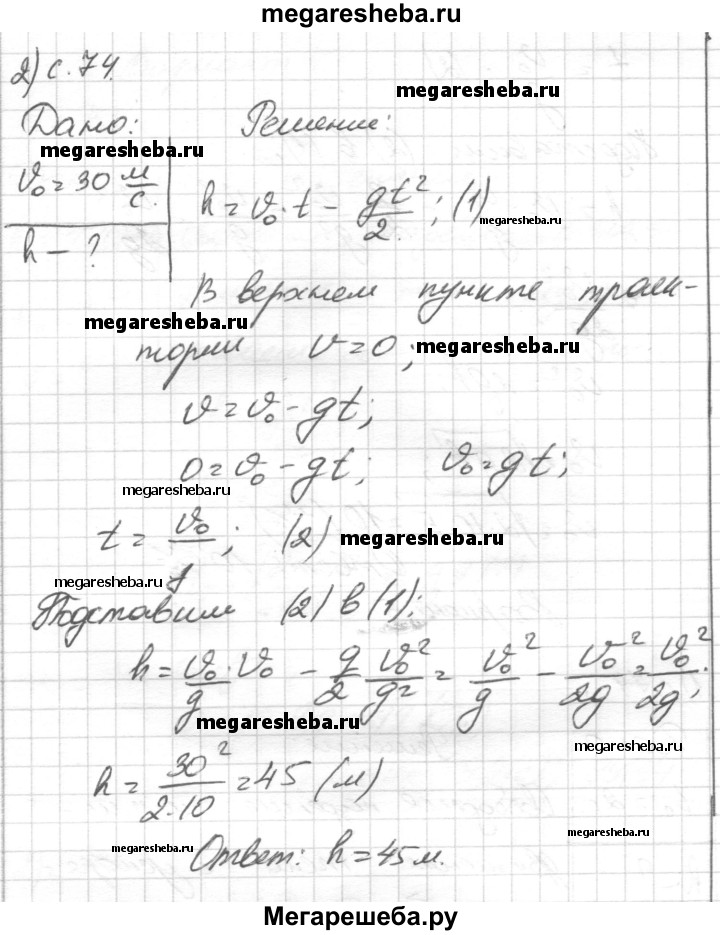 megaresheba.ru
2) с. 74.
megaresheba.ru
Дано: Решение:
megaresheba.ru
v₀ = 30 м/с.
h = v₀·t - gt²/2; (1)
megaresheba.ru
h - ?
В верхнем пункте траек-
megaresheba.ru
тории v = 0;
megaresheba.ru
v = v₀ - gt;
0 = v₀ - gt; v₀ = gt;
megaresheba.ru
t = v₀/g; (2)
megaresheba.ru
megaresheba.ru
Подставим (2) в (1):
h = v₀/g · v₀ - g/2 v₀²/g² = v₀²/g - v₀²/2g = v₀²/2g;
megaresheba.ru
megaresheba.ru
h = 30²/2·10 = 45 (м)
megaresheba.ru
megaresheba.ru
Ответ: h = 45 м.
Мегарешеба.ру